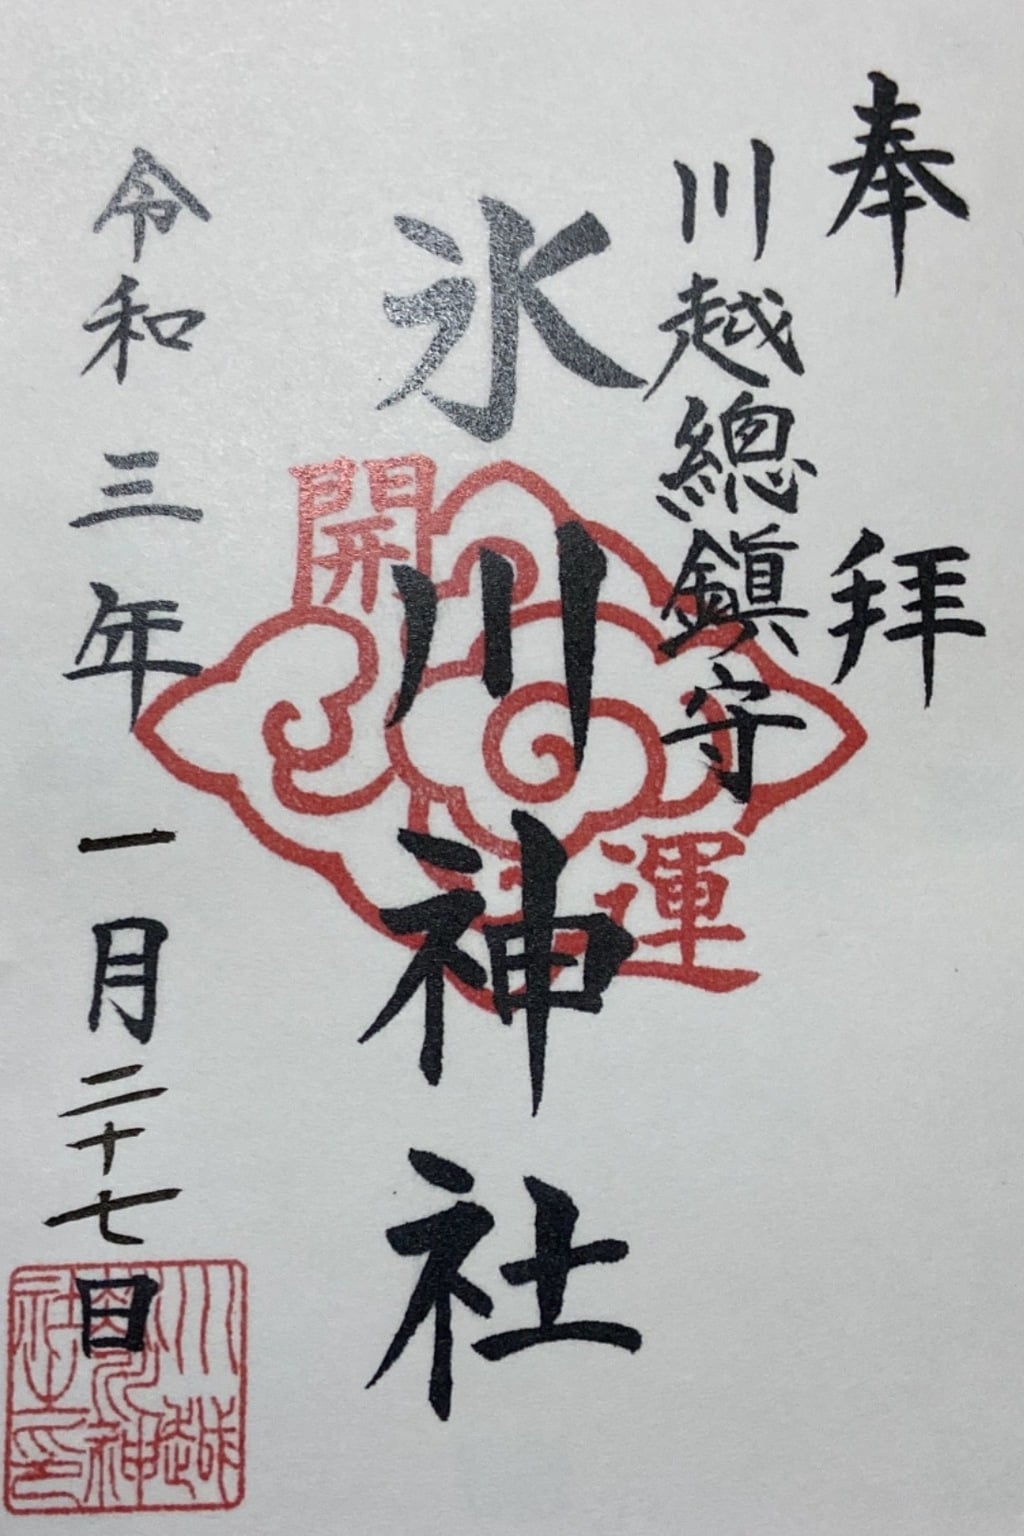 奉拝
川越總鎮守
氷川神社
開運
令和三年一月二十七日
川越
神
社之印